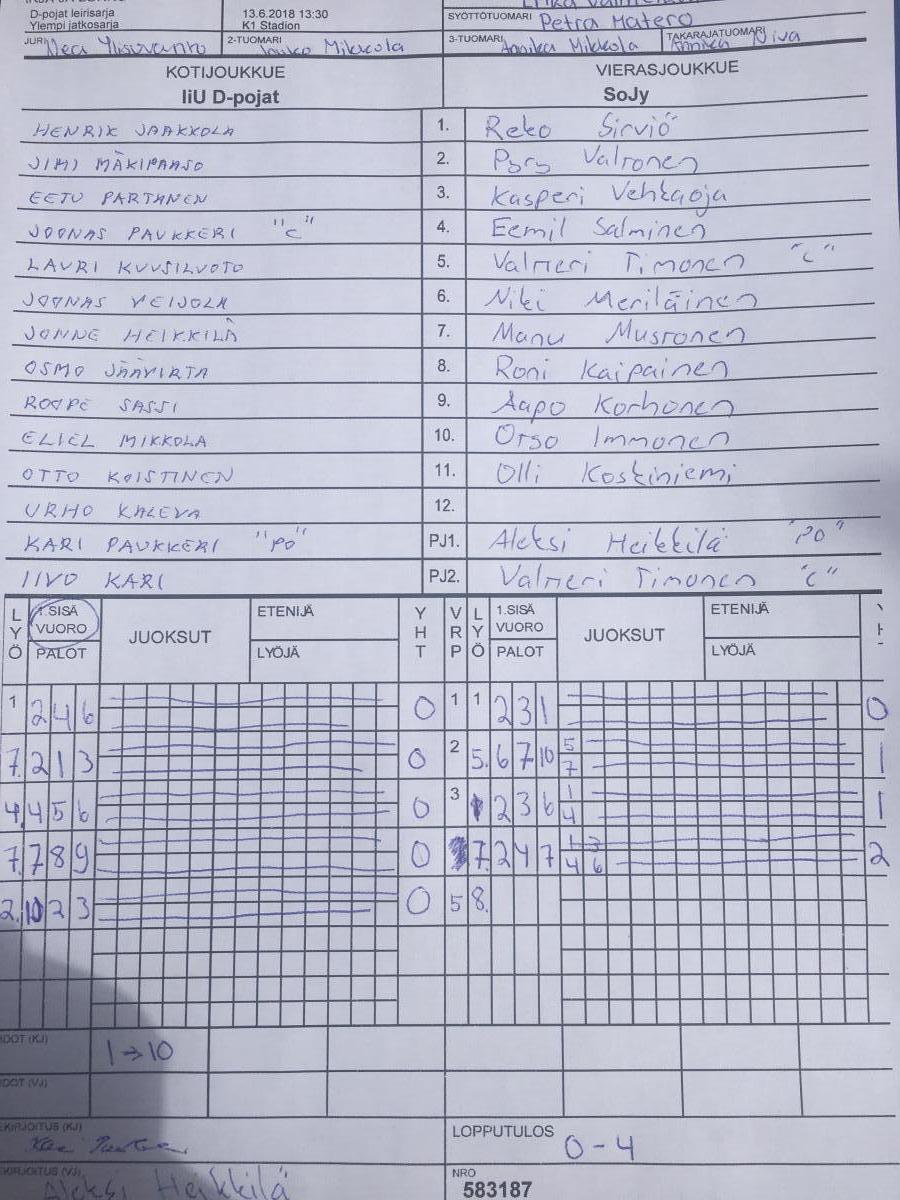 D-pojat leirisarja 13.6.2018 13:30 SYÖTTÖTUOMARI Petra Matero
Ylempi jatkosarja K1 Stadion
2-TUOMARI Mikkola 3-TUOMARI Annika Mikkola TAKARAJATUOMARI Annika Niva
KOTIJOUKKUE VIERASJOUKKUE
IiU D-pojat SoJy
HENRIK JAAKKOLA 1. Reko Sirviö
JIMI MÄKIPAASO 2. Valtonen
EETU PARTANEN 3. Kasperi Vehkaoja
JOONAS PAUKKERI "C" 4. Eemil Salminen
LAURI KUUSILUOTO 5. Valtteri Timonen "C"
JOONAS VEIJOLA 6. Niki Meriläinen
JONNE HEIKKILÄ 7. Manu Mustonen
OSMO JÄÄVIRTA 8. Roni Kaipainen
ROOPE SASSI 9. Aapo Korhonen
ELIEL MIKKOLA 10. Otso Immonen
OTTO KOISTINEN 11. Olli Koskiniemi
URHO KALEVA 12.
KARI PAUKKERI "PO" PJ1. Aleksi Heikkilä "PO"
IIVO KARI PJ2. Valtteri Timonen "C"
LYÖ 1.SISÄ VUORO PALOT JUOKSUT ETENIJÄ LYÖJÄ YHT VRP LYÖ 1.SISÄ VUORO PALOT JUOKSUT ETENIJÄ LYÖJÄ
1 2 4 6 0 1 1 2 3 1 0
7. 2 1 3 0 2 5. 6 7 10 5 7 1
4. 4 5 6 0 3 1 2 3 6 1 4 1
7. 7 8 9 0 7. 2 4 7 1 3 4 6 2
2. 10 2 3 0 5 8.
(KJ) 1→10
(VJ)
(KJ) LOPPUTULOS 0-4
(VJ) Aleksi Heikkilä NRO
583187